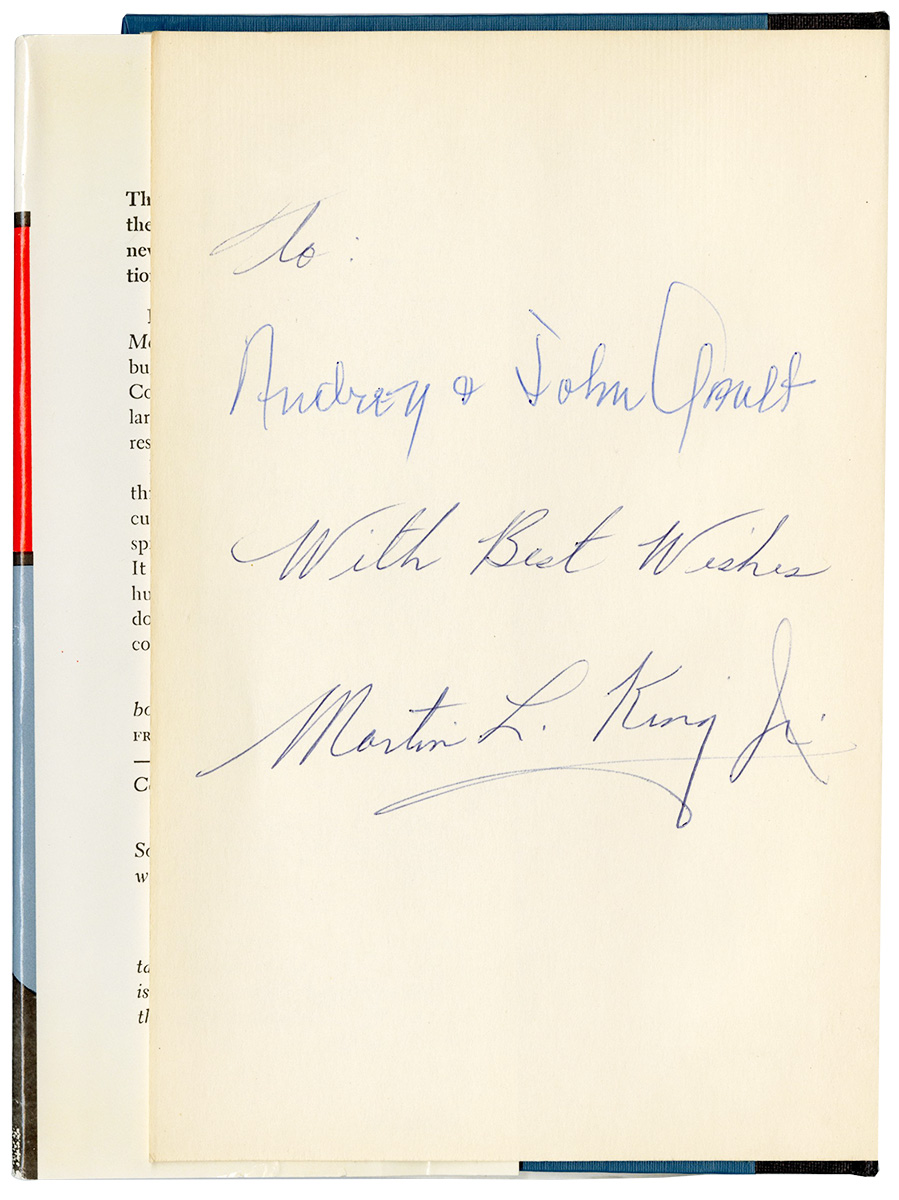 To:
Audrey & John Gault
With Best Wishes
Martin L. King Jr.
Th
the
nev
tio
Mo
bu
Co
lar
res
thi
cu
spi
It
hu
do
co
bo
FR
So
w
ta
is
th